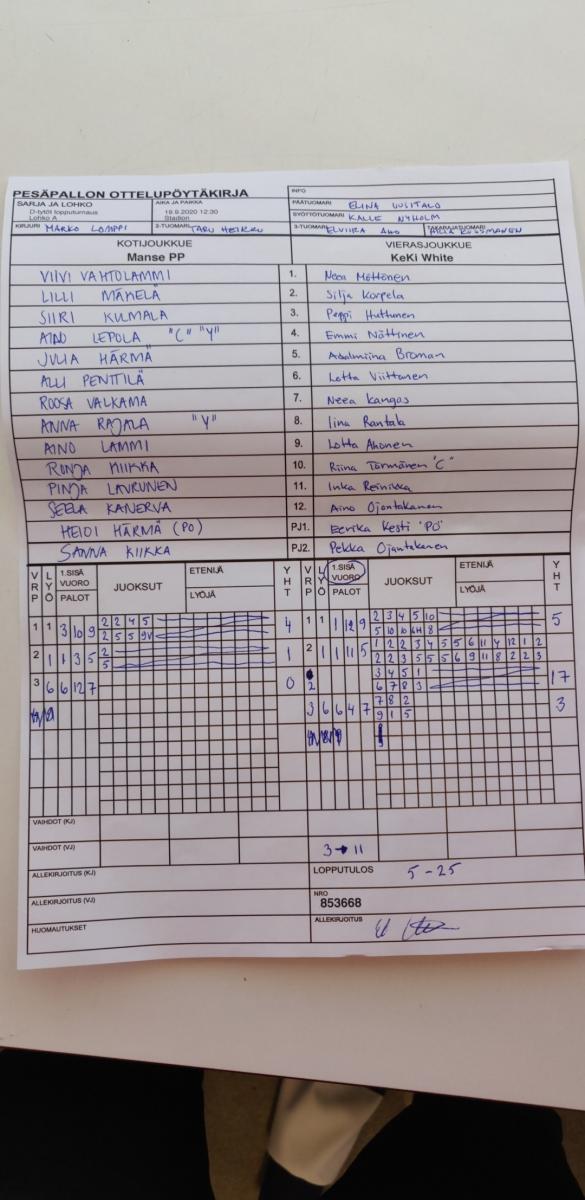 PESÄPALLON OTTELUPÖYTÄKIRJA
INFO
SARJA JA LOHKO
D-tytöt lopputurnaus
Lohko A
AIKA JA PAIKKA
19.9.2020 12:30
Stadion
PÄÄTUOMARI ELINA UUSITALO
SYÖTTÖTUOMARI KALLE NYHOLM
KIRJURI MARKO LOMPPI 2-TUOMARI TARU 3-TUOMARI ELVIIRA AHO TAKARAJATUOMARI
KOTIJOUKKUE VIERASJOUKKUE
Manse PP KeKi White
VIIVI VAHTOLAMMI 1. Neea Möttönen
LILLI MÄKELÄ 2. Silja Korpela
SIIRI KULMALA 3. Peppi Huttunen
AINO LEPOLA "C" "Y" 4. Emmi Nättinen
JULIA HÄRMÄ 5. Broman
ALLI PENTTILÄ 6. Lotta Viittanen
ROOSA VALKAMA 7. Neea Kangas
ANNA RAJALA "Y" 8. Iina Rantala
AINO LAMMI 9. Lotta Ahonen
RONJA KIIKKA 10. Riina Törmänen "C"
PINJA LAURUNEN 11. Inka Reinikka
SEELA KANERVA 12. Aino Ojantakanen
HEIDI HÄRMÄ (PO) PJ1. Eerika Kesti "PO"
SANNA KIIKKA PJ2. Pekka Ojantakanen
VRP LYÖ 1.SISÄ VUORO PALOT JUOKSUT ETENIJÄ LYÖJÄ YHT VRP LYÖ 1.SISÄ VUORO PALOT JUOKSUT ETENIJÄ LYÖJÄ YHT
1 1 3 10 9 2 2 4 5 4 1 1 1 12 9 2 3 4 5 10 5
2 5 5 9V 5 10 10 6H 8
2 1 1 3 5 2 1 2 1 1 11 5 1 2 2 3 4 5 5 6 11 4 12 1 2
5 2 2 3 5 5 5 6 9 11 8 2 2 3
3 6 6 12 7 0 2 3 4 5 1 17
6 7 8 3
3 6 6 4 7 7 8 2 3
9 1 5
VAIHDOT (KJ)
VAIHDOT (VJ) 3→11
ALLEKIRJOITUS (KJ) LOPPUTULOS 5-25
ALLEKIRJOITUS (VJ) NRO
853668
HUOMAUTUKSET ALLEKIRJOITUS